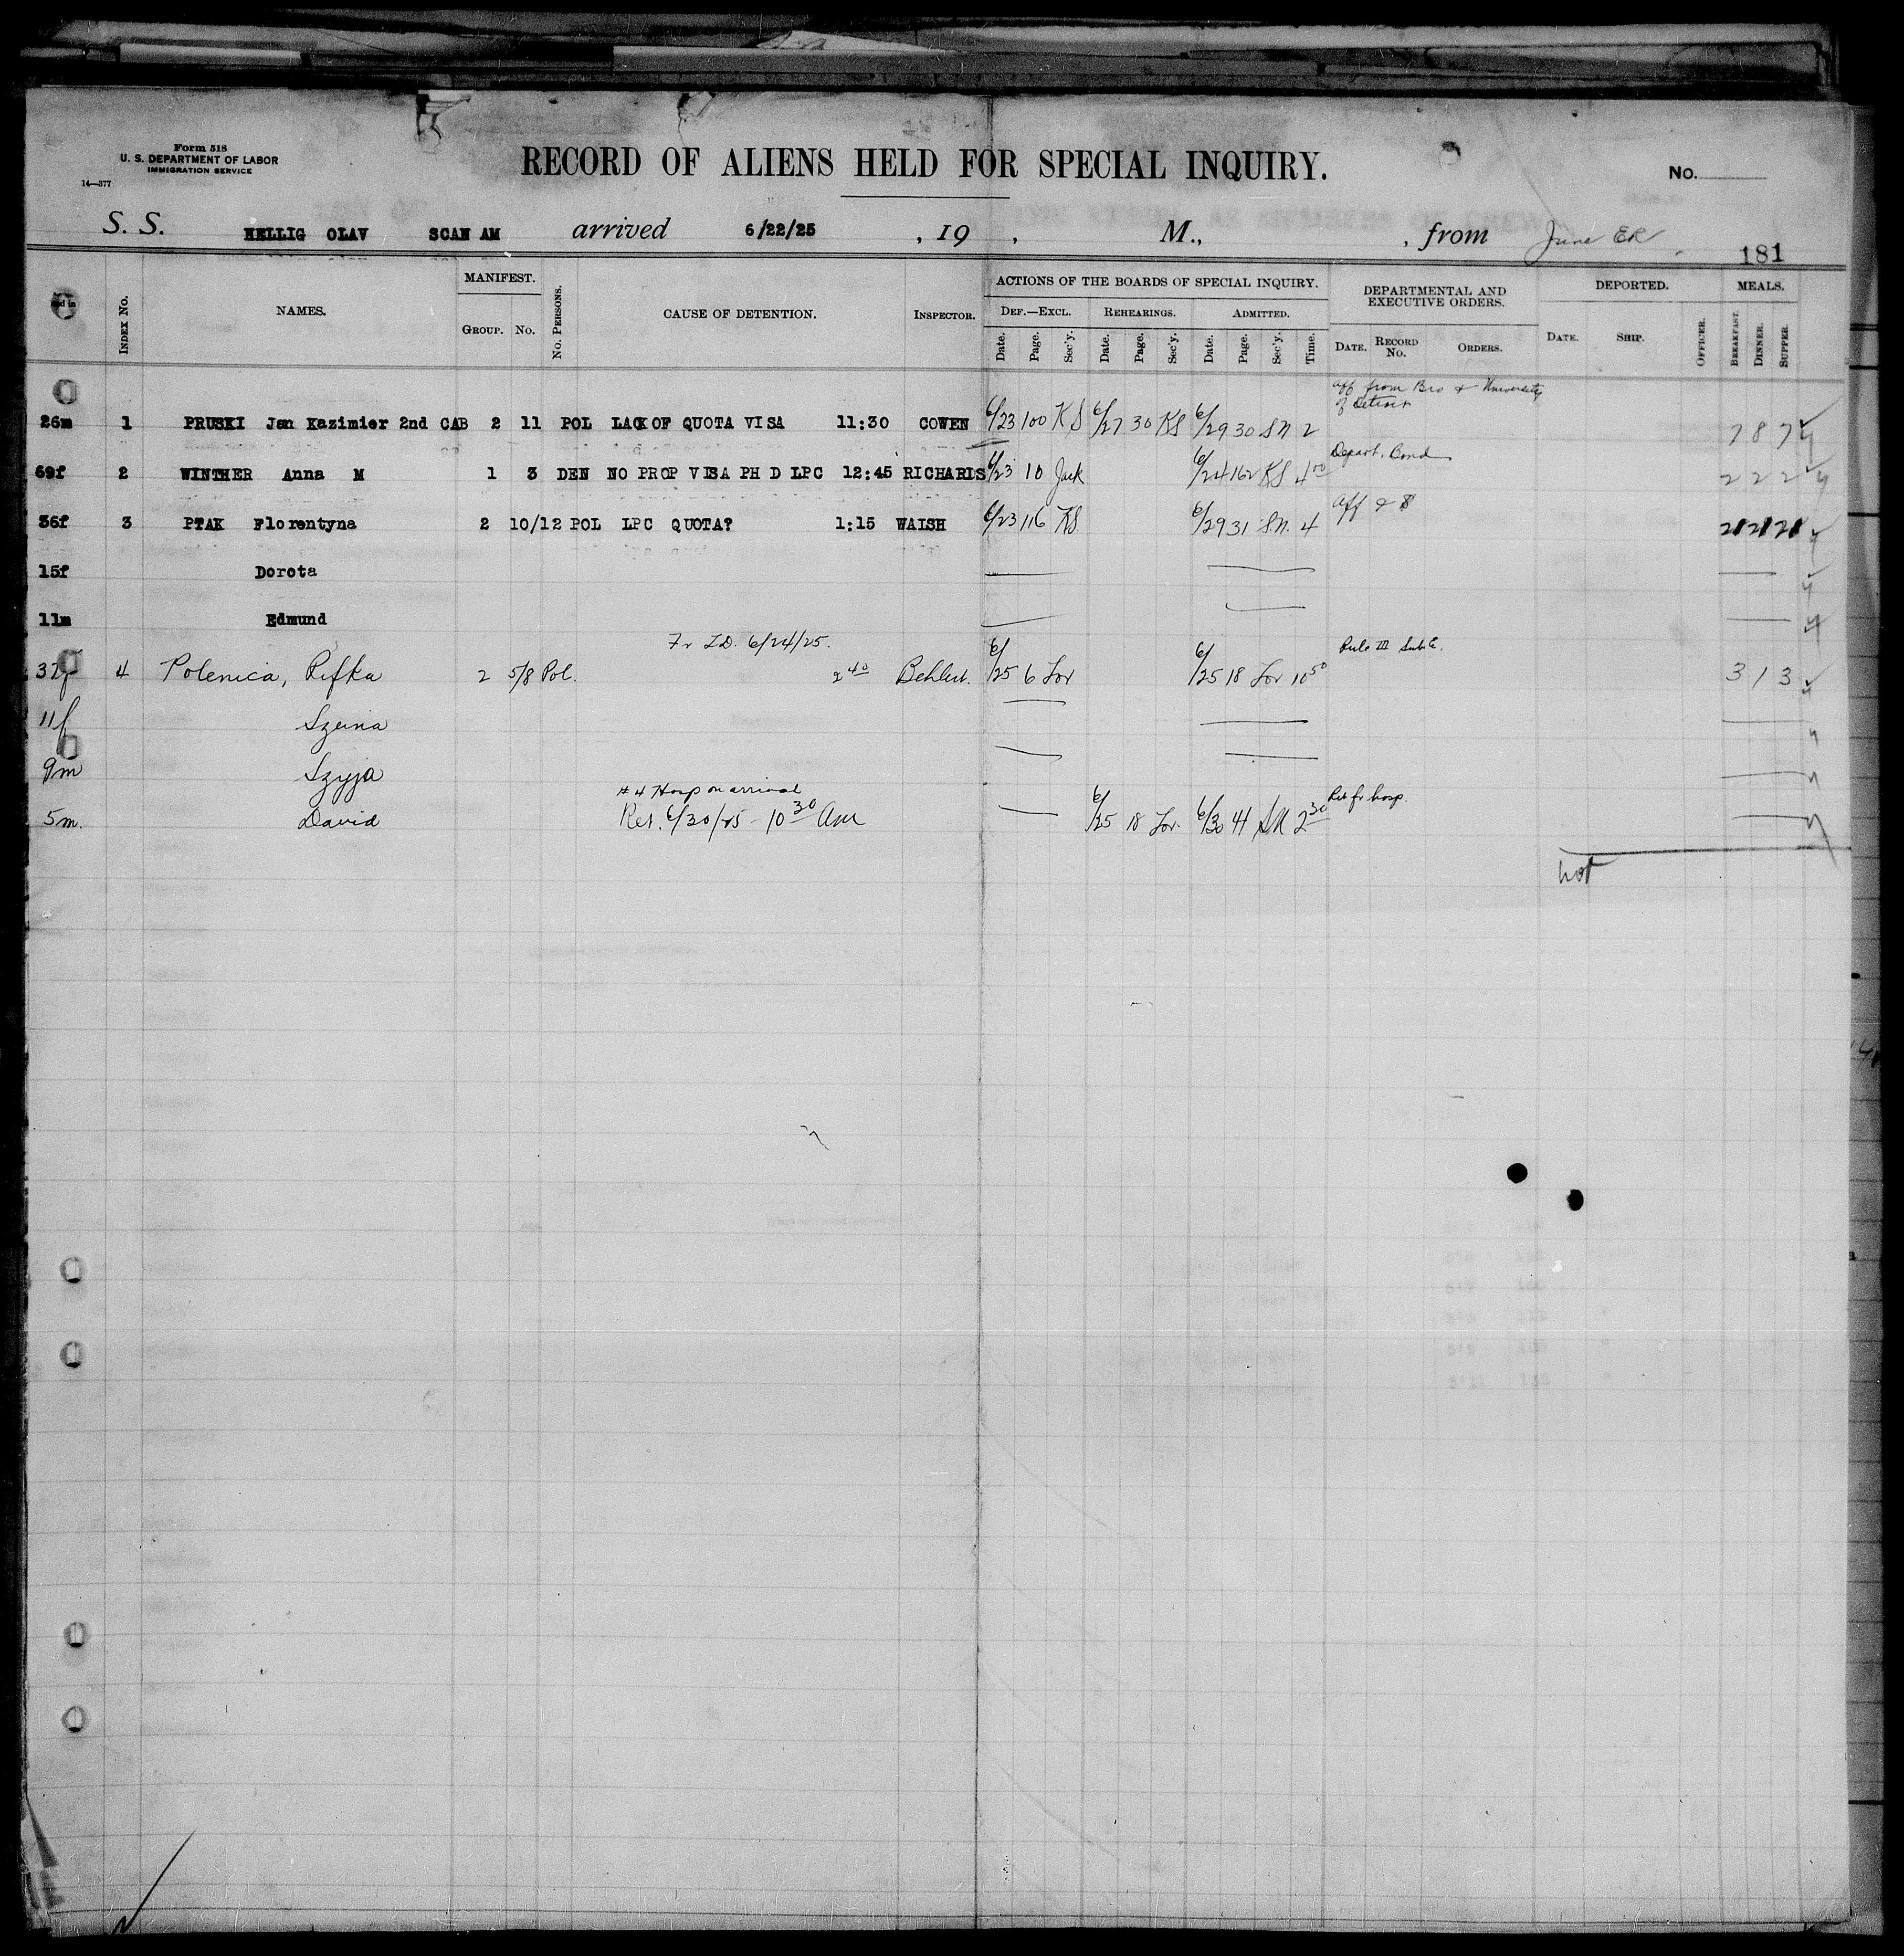 Form 518
U. S. DEPARTMENT OF LABOR
IMMIGRATION SERVICE
14—377
RECORD OF ALIENS HELD FOR SPECIAL INQUIRY.
No.
S. S. HELLIG OLAV SCAN AM arrived 6/22/25 , 19 , M., , from June ER
181
INDEX No.
NAMES.
MANIFEST.
GROUP. No.
No. PERSONS.
CAUSE OF DETENTION.
INSPECTOR.
ACTIONS OF THE BOARDS OF SPECIAL INQUIRY.
DEF.—EXCL. REHEARINGS. ADMITTED.
Date. Page. Sec'y. Date. Page. Sec'y. Date. Page. Sec'y. Time.
DEPARTMENTAL AND
EXECUTIVE ORDERS.
DATE. RECORD No. ORDERS.
DEPORTED.
DATE. SHIP. OFFICER.
MEALS.
BREAKFAST. DINNER. SUPPER.
aff from Bro & University
of Detroit
26m 1 PRUSKI Jan Kazimier 2nd CAB 2 11 POL LACK OF QUOTA VISA 11:30 COWEN 6/23 100 KS 6/27 30 KS 6/29 30 SN 2 7 8 7
Depart. Bond
69f 2 WINTHER Anna M 1 3 DEN NO PROP VISA PH D LPC 12:45 RICHARDS 6/23 10 Jack 6/24 162 KS 4 00 2 2 2
aff & $
36f 3 PTAK Florentyna 2 10/12 POL LPC QUOTA? 1:15 WALSH 6/23 116 KS 6/29 31 SN. 4 21 21 21
15f Dorota
11m Edmund
Fr T.D. 6/24/25.
Rule III Sub
37f 4 Polenica, Rifka 2 5/8 Pol. 2 40 6/25 6 Lor 6/25 18 Lor 10 50 3 1 3
11f Szeina
9m Szyja
# 4 Hosp on arrival
5m. David Rel. 6/30/25 - 10 30 Am 6/25 18 Lor. 6/30 41 SN 2 30 Rel fr hosp.